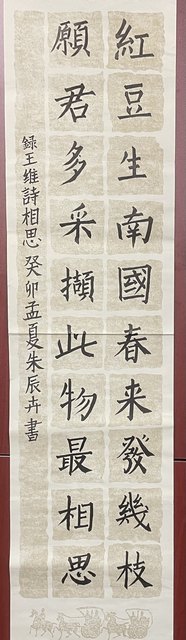 紅豆生南國春来發幾枝
願君多采擷此物最相思
録王維詩相思 癸卯孟夏朱辰卉書